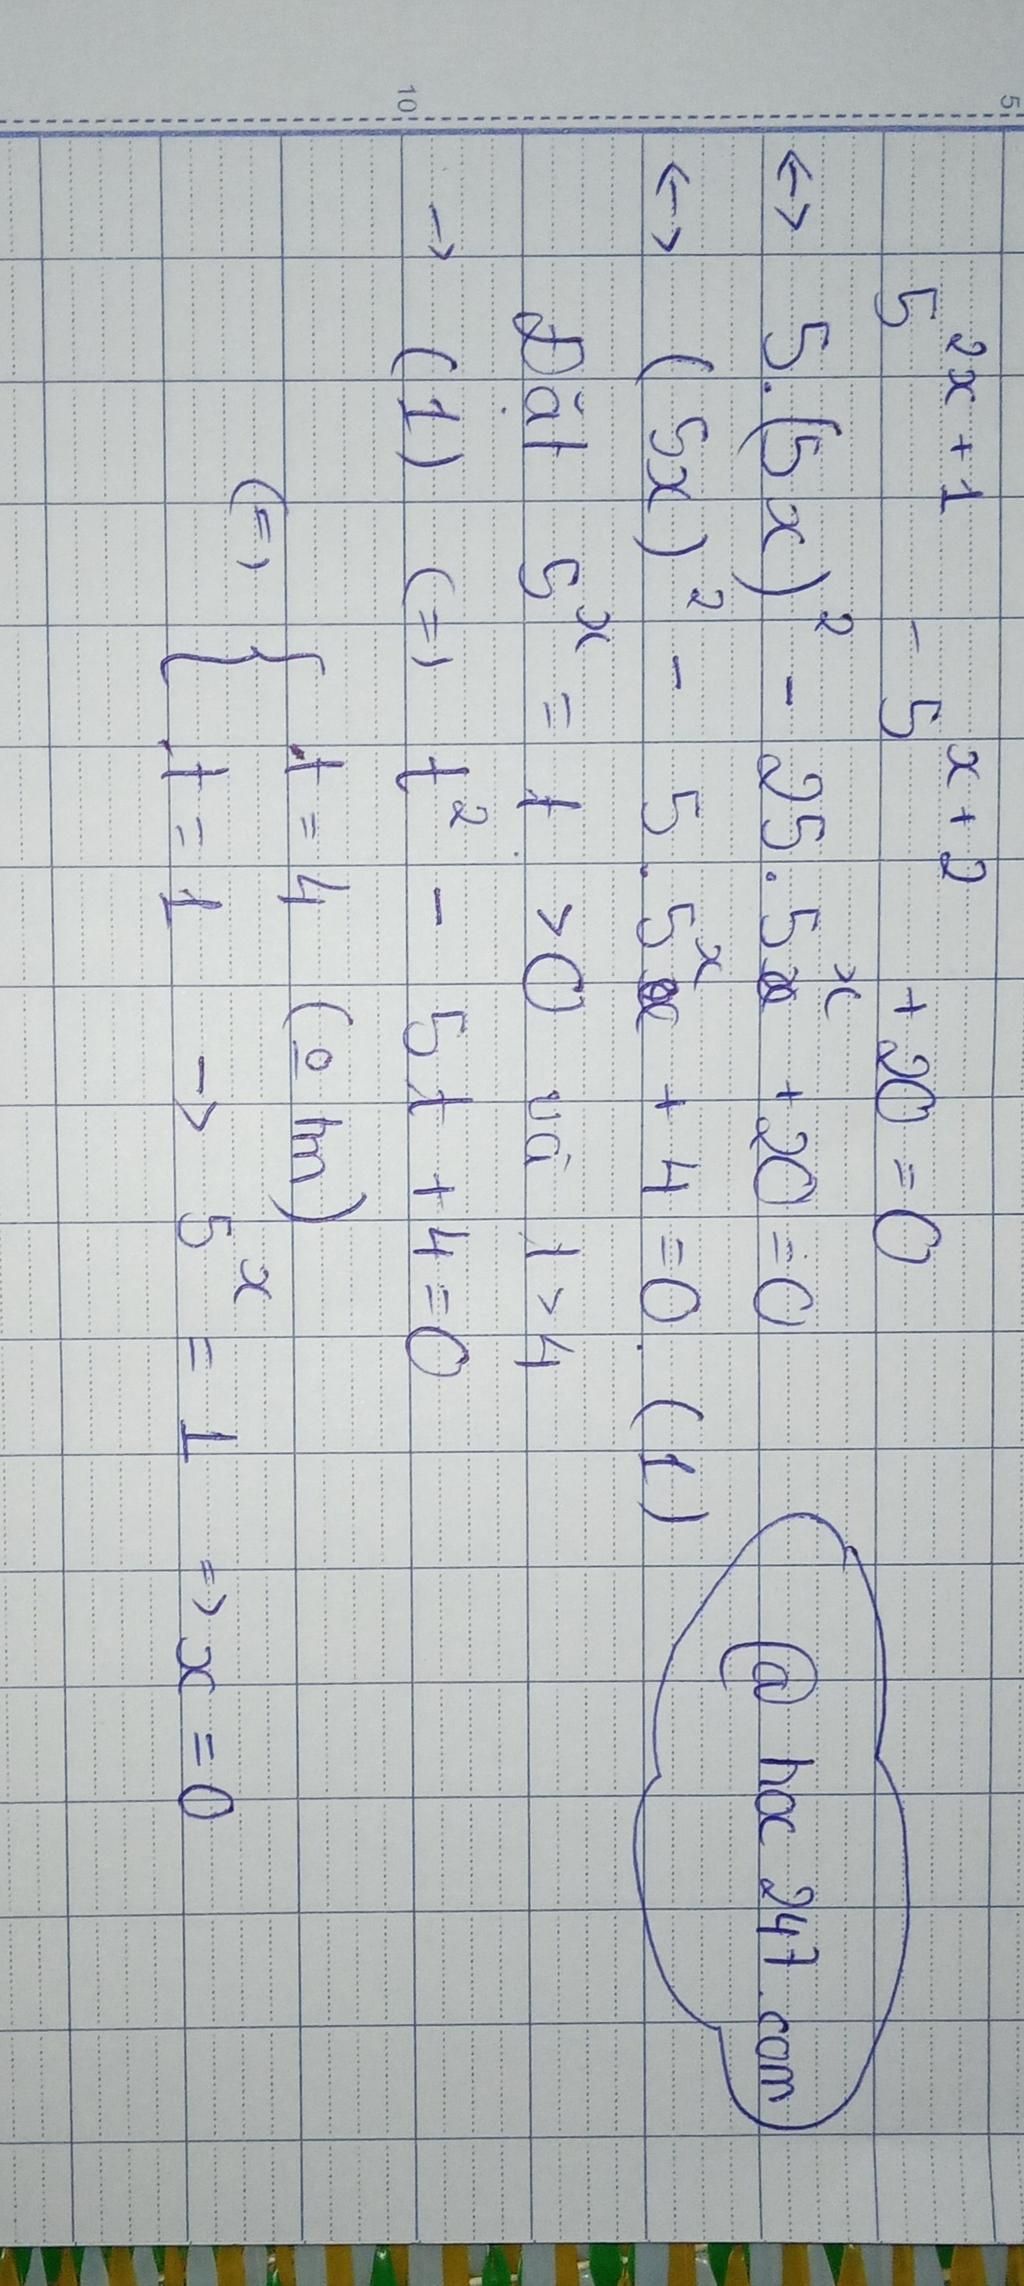 5^{2x+1} - 5^{x+2} + 20 = 0
<-> 5.(5x)^2 - 25.5^x + 20 = 0
<-> (5x)^2 - 5.5^x + 4 = 0. (1)
@ hoc 247.com
Đặt 5^x = t > 0 và t > 4
-> (1) (=) t^2 - 5t + 4 = 0
(=) { t = 4 (o tm)
t = 1 -> 5^x = 1 => x = 0
5
10